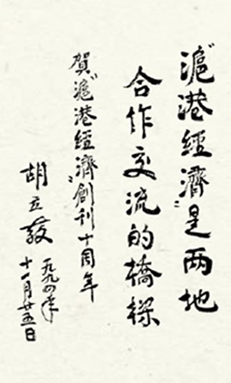 "滬港經濟"是两地
合作交流的橋樑
賀"滬港經濟"創刊十周年
胡立教
一九九四年
十一月廿五日